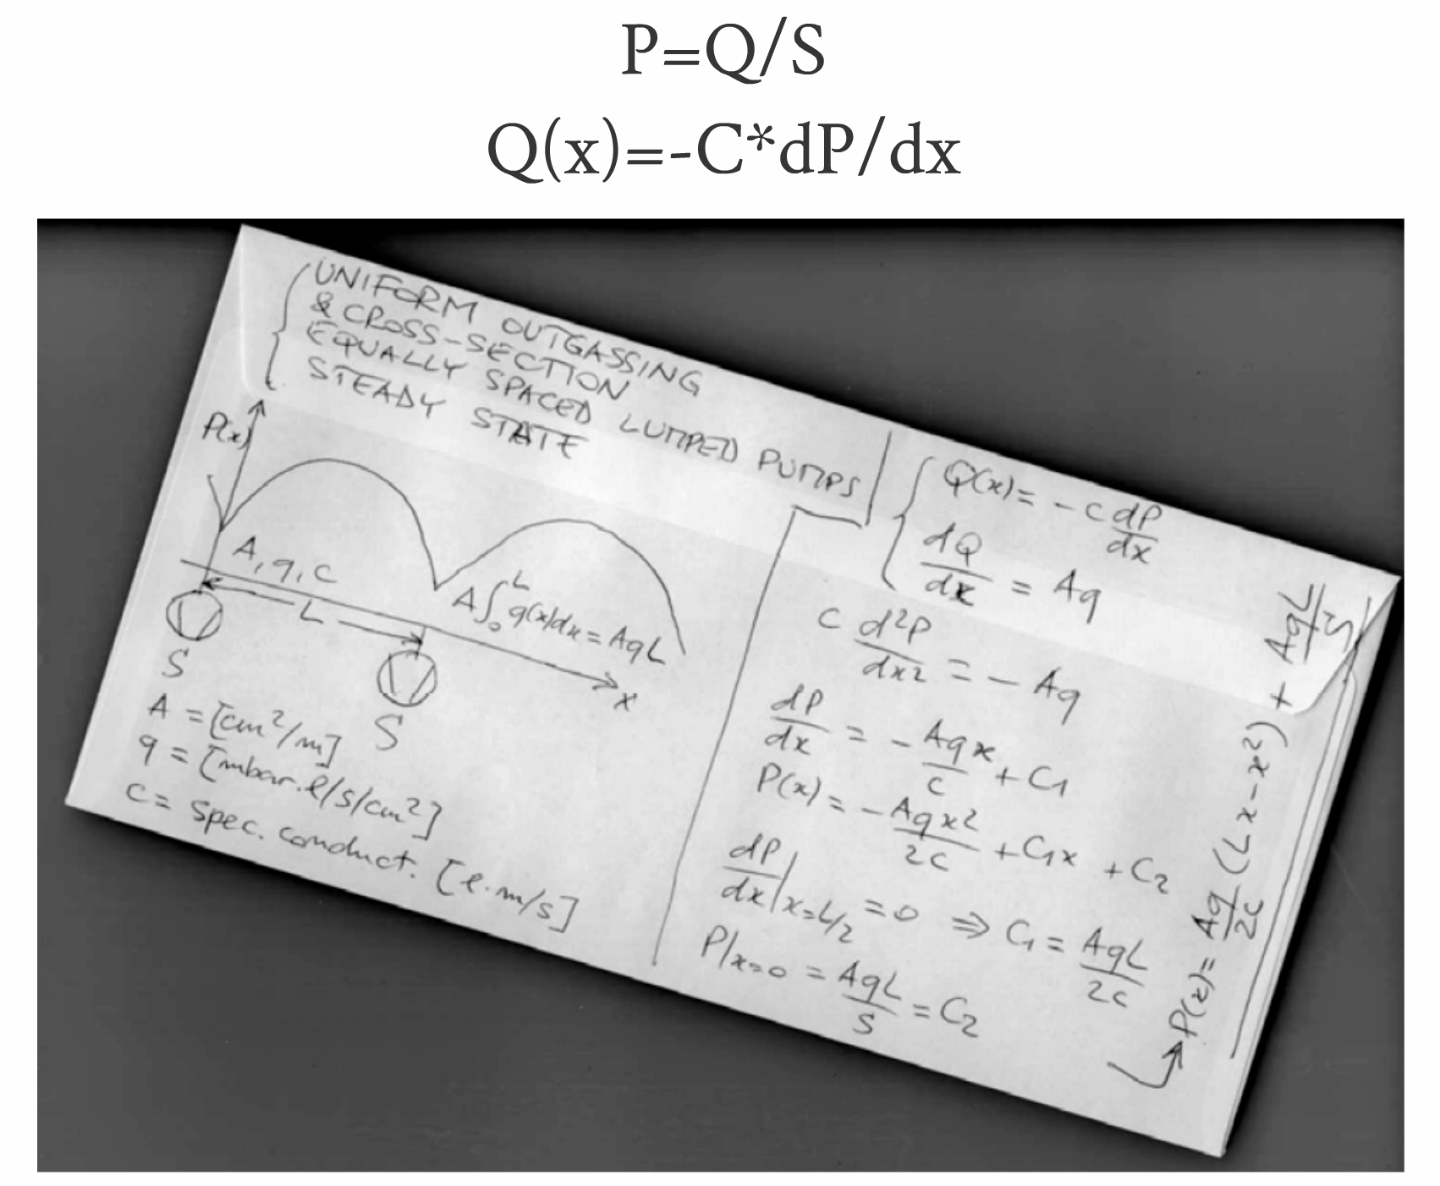 P=Q/S
Q(x)=-C*dP/dx
UNIFORM OUTGASSING
& CROSS-SECTION
EQUALLY SPACED LUMPED PUMPS
STEADY STATE
P(x)
A, q, c
L
A∫₀ᴸ q(x)dx = AqL
x
S
S
A = [cm²/m]
q = [mbar.l/s/cm²]
c = spec. conduct. [l.m/s]
Q(x) = - c dP/dx
dQ/dx = Aq
c d²P/dx² = - Aq
dP/dx = - Aqx/c + C₁
P(x) = - Aqx²/2c + C₁x + C₂
dP/dx|x=L/2 = 0 ⇒ C₁ = AqL/2c
P|x=0 = AqL/S = C₂
→ P(x) = Aq/2c (Lx - x²) + AqL/S